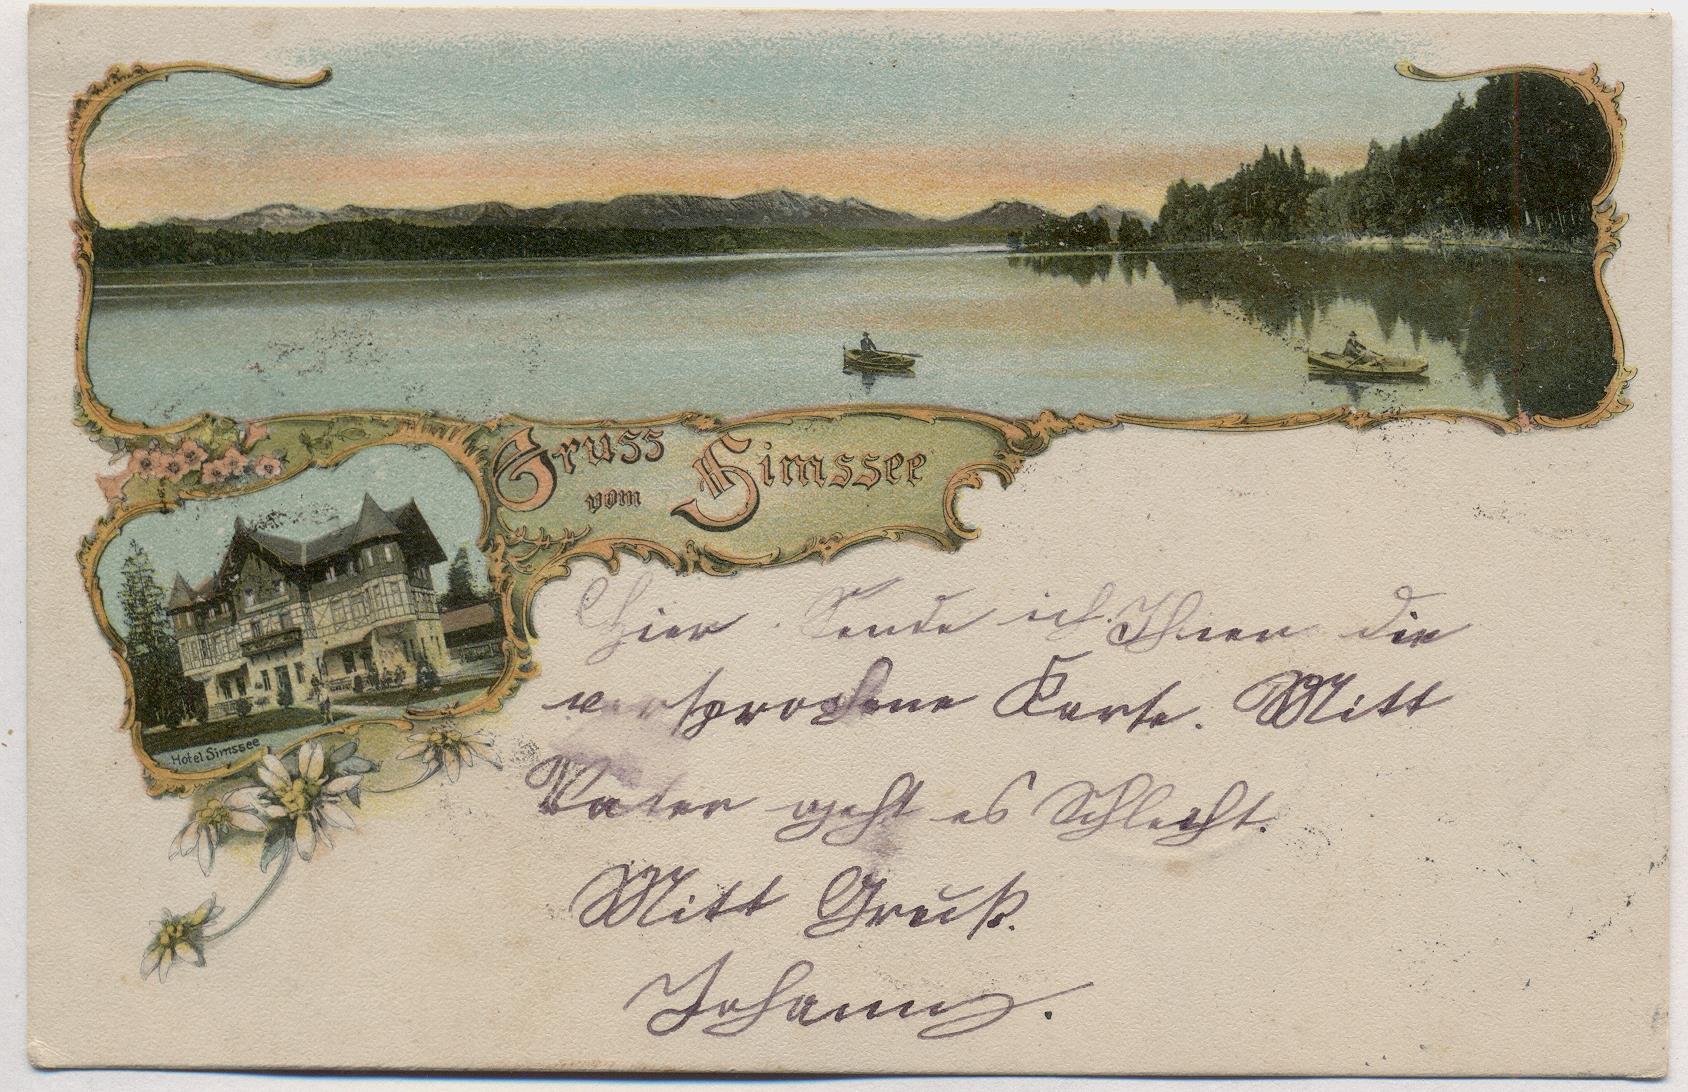 Gruss
vom
Simssee
Hotel Simssee
Hier Sende ich Ihnen die
versprochene Karte. Mitt
Vater geht es Schlecht.
Mitt Gruß.
Johann